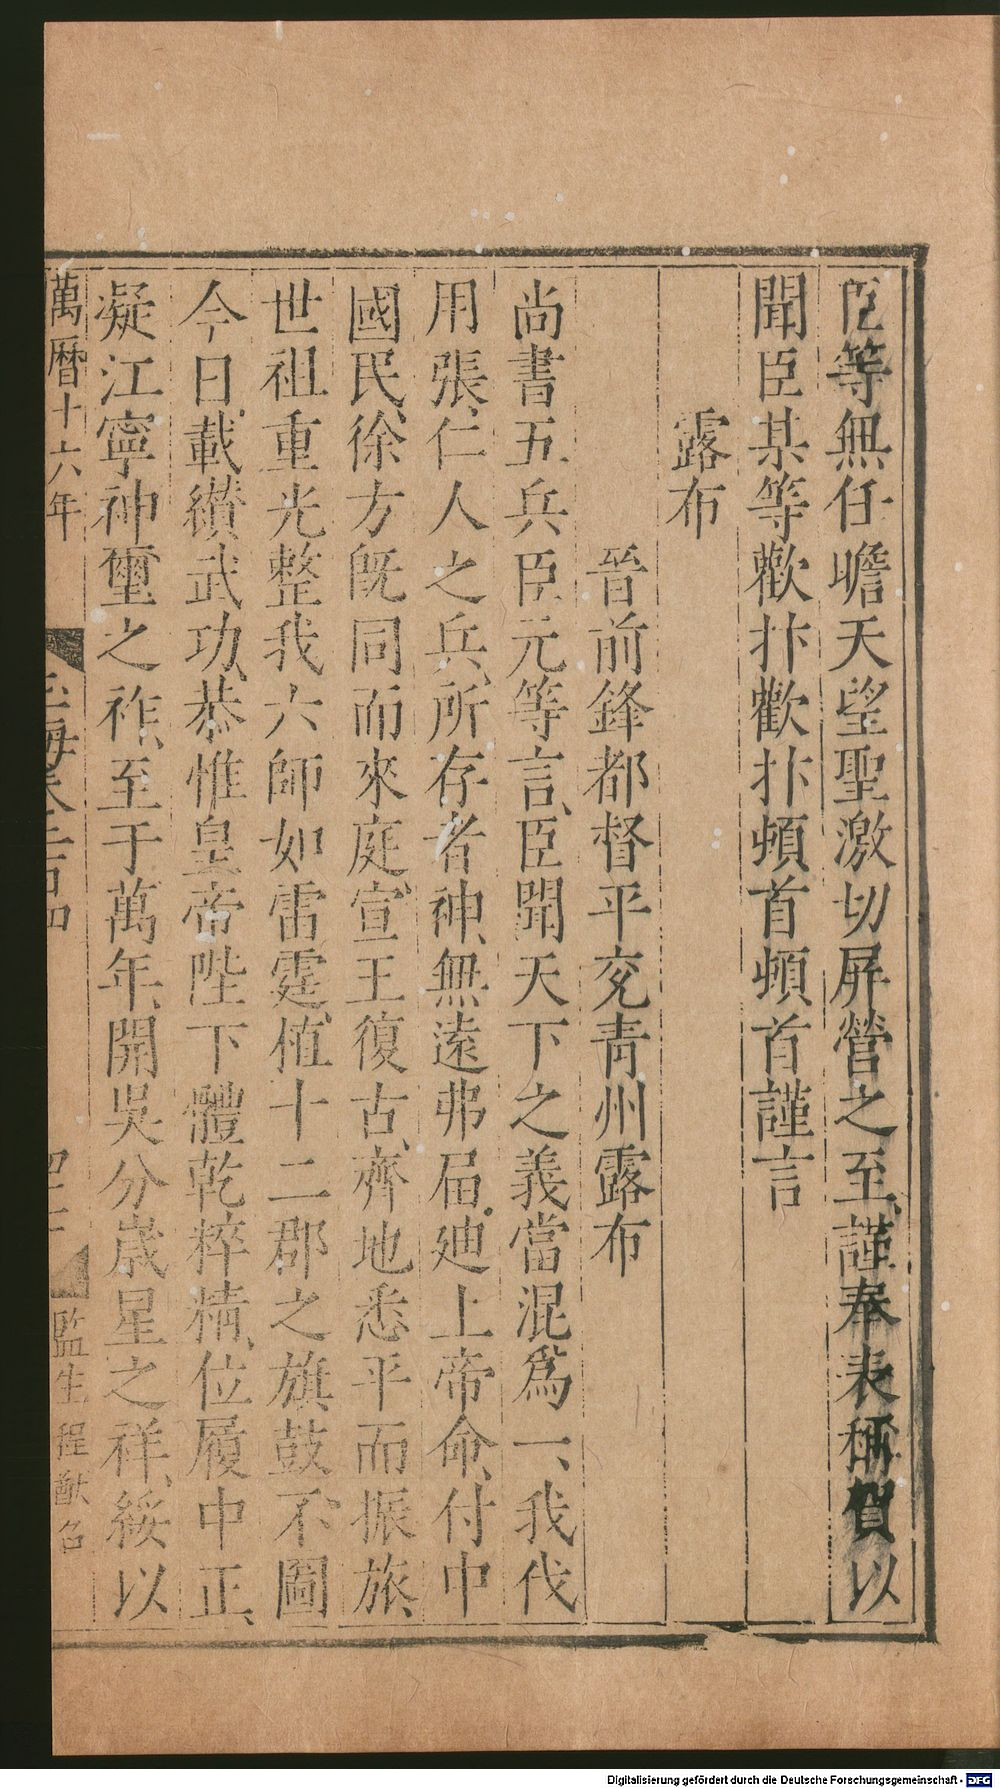 臣等無任瞻天望聖激切屏營之至、謹奉表稱賀以
聞臣某等歡抃歡抃頓首頓首謹言
露布
晉前鋒都督平兗青州露布
尚書五兵臣元等言、臣聞天下之義當混爲一、我伐
用張、仁人之兵、所存者神、無遠弗届。廸上帝命、付中
國民、徐方旣同而來庭、宣王復古、齊地悉平而振旅、
世祖重光整我六師如雷霆、植十二郡之旗鼓、不圖
今日、載纘武功、恭惟皇帝陛下體乾粹精、位履中正、
凝江寧神璽之祚、至于萬年、開吳分歲星之祥、綏以
萬曆十六年
玉海卷二百四
監生程猷名
Digitalisierung gefördert durch die Deutsche Forschungsgemeinschaft - DFG